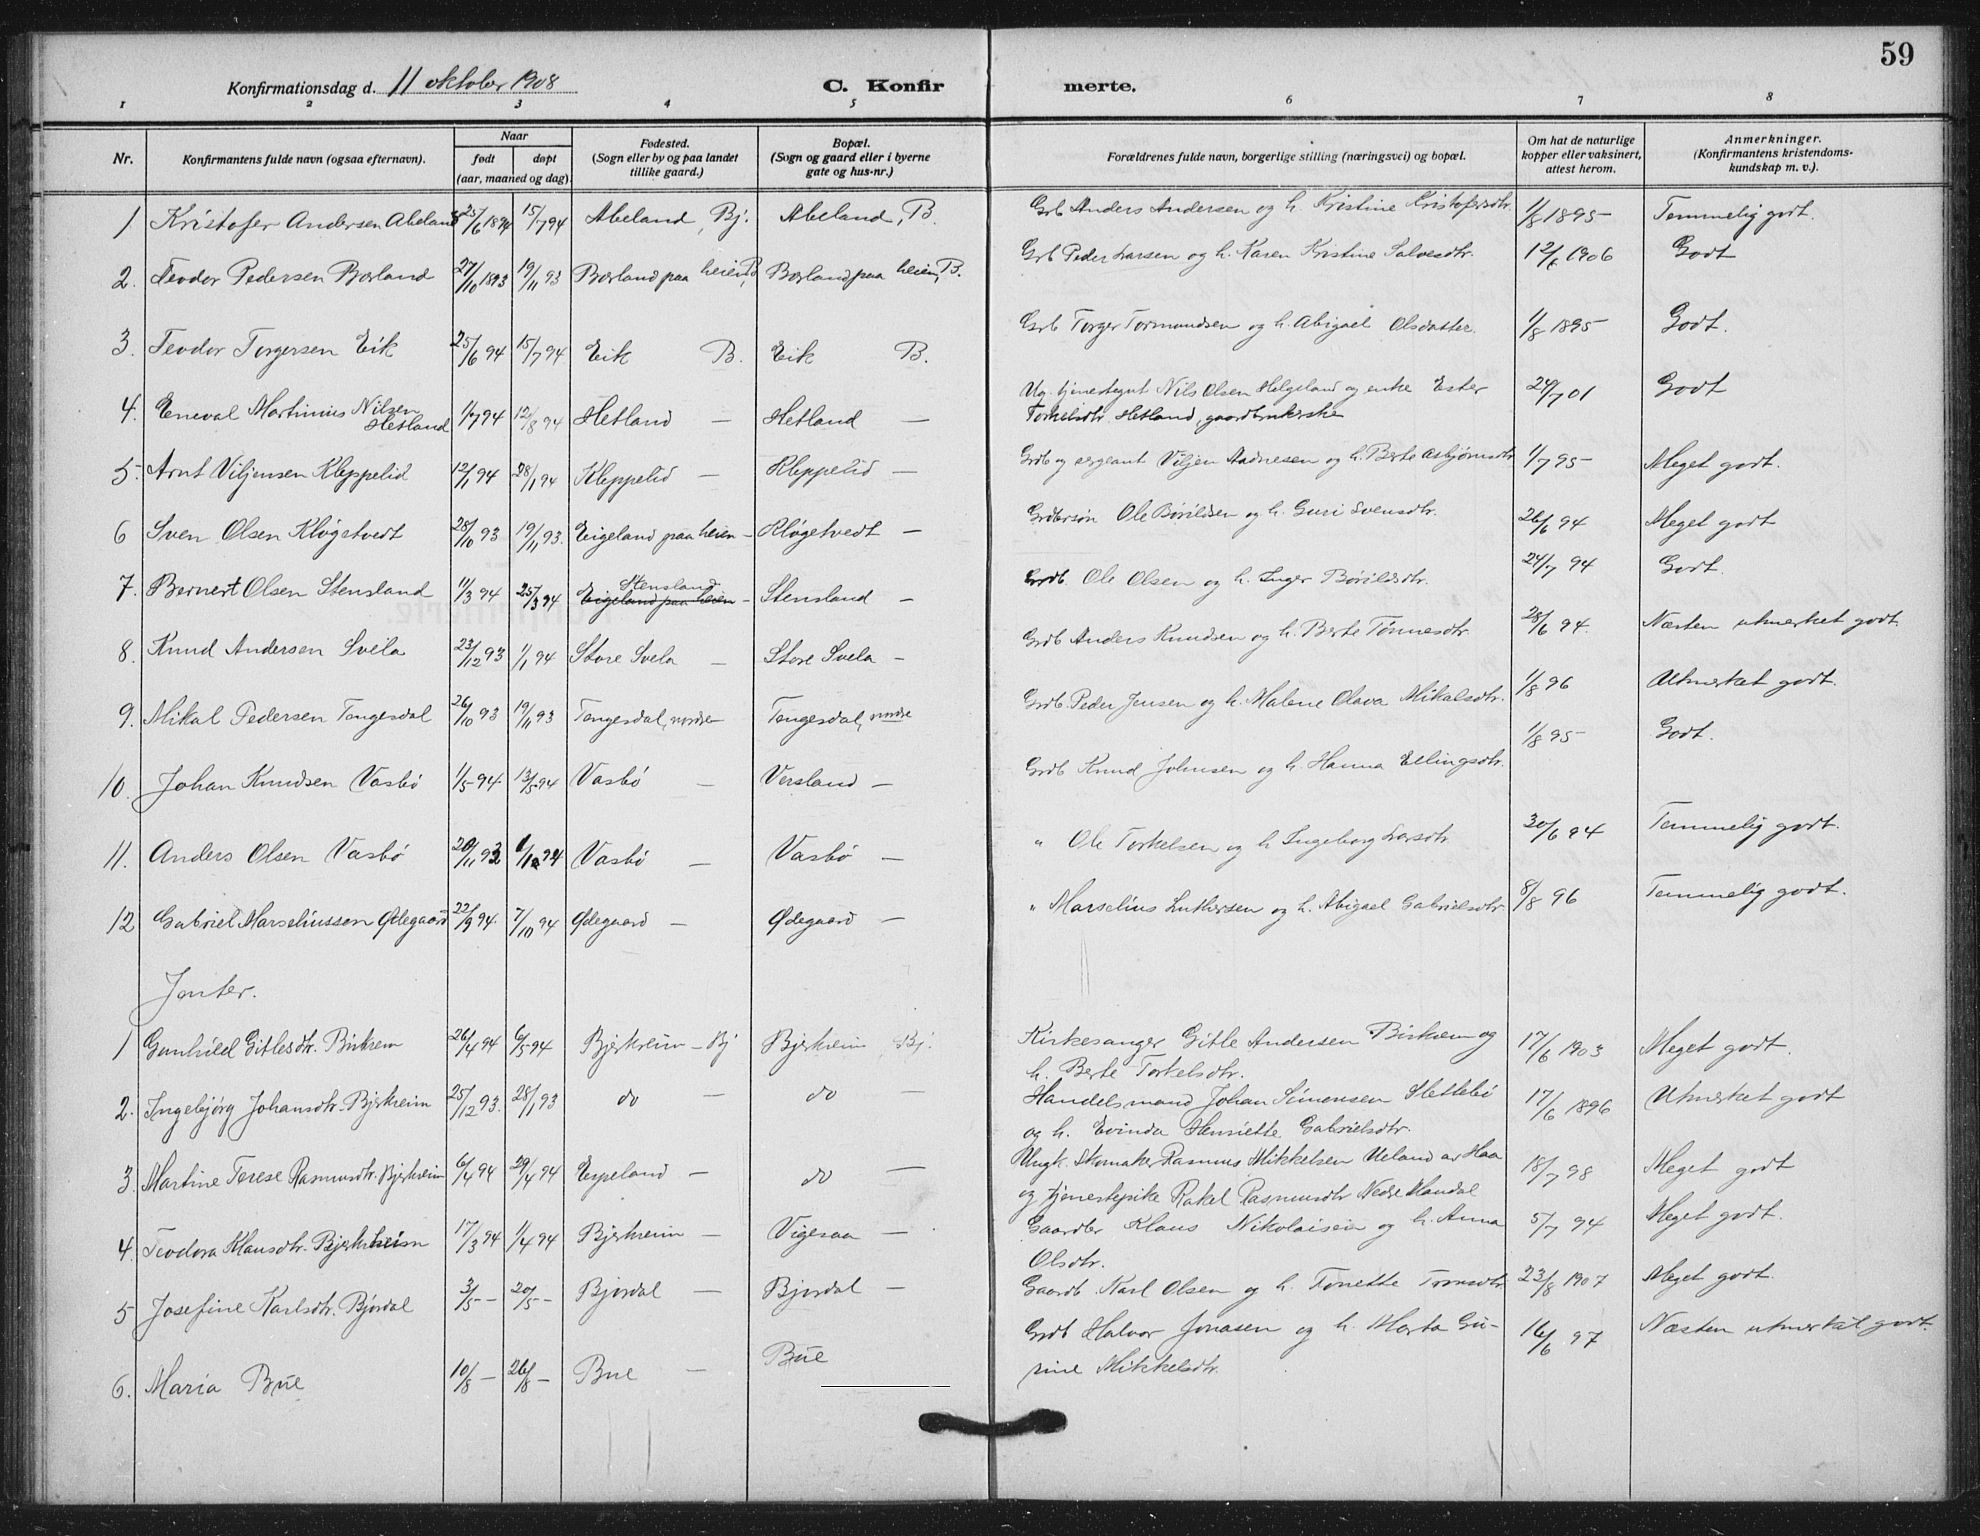 59
Konfirmationsdag d. 11 oktober 1908 C. Konfirmerte.
1 2 3 4 5 6 7 8
Nr. Konfirmantens fulde navn (ogsaa efternavn). Naar født døpt (aar, maaned og dag). Fødested. (Sogn eller by og paa landet tillike gaard.) Bopæl. (Sogn og gaard eller i byerne gate og hus-nr.) Forældrenes fulde navn, borgerlige stilling (næringsvei) og bopæl. Om hat de naturlige kopper eller vaksinert, attest herom. Anmerkninger. (Konfirmantens kristendomskundskap m. v.).
1 Kristofer Andersen Abeland 25/6 1894 15/7 94 Abeland, Bj. Abeland, B. Grb Anders Andersen og h. Kristine Kristofersdtr. 1/8 1895 Temmelig godt.
2. Teodor Pedersen Børland 27/10 1893 19/11 93 Børland paa heien, B. Børland paa heien, B. Grb Peder Larsen og h. Karen Kristine Salvesdtr. 1906 Godt
3. Teodor Torgersen Eik 25/6 94 15/7 94 Eik B. Eik B. Grb Torger Tormundsen og h. Abigael Olsdatter 1/8 1895 Godt.
4. Eneval Martinius Nilsen Hetland 1/7 94 12/8 94 Hetland — Hetland — Ug. tjenestegut Nils Olsen Helgeland og enke Ester
Torkelsdtr. Hetland, gaardbrukerske 24/7 01 Godt
5. Arnt Viljensen Kleppelid 12/1 94 28/1 94 Kleppelid — Kleppelid — Grdb og sergeant Viljen Aadnesen og h. Berte Asbjørnsdtr 1/7 95 Meget godt.
6 Sven Olsen Kløgetvedt 28/10 93 19/11 93. Eigeland paa heien — Kløgetvedt — Grdbrsøn Ole Børildsen og h. Guri Svensdtr. 26/6 94 Meget godt
7. Bernert Olsen Stensland 11/3 94 25/3 94 Stensland Eigeland paa heien — Stensland — Grdb. Ole Olsen og h. Inger Børildsdtr. 24/7 94 Godt.
8. Knud Andersen Svela 23/12 93 1/1 94 Store Svela — Store Svela — Grdb Anders Knudsen og h. Berte Tønnesdtr. 28/6 94. Næsten utmerket godt.
9. Mikal Pedersen Tengesdal 26/10 93 19/11 93 Tengesdal, nordre Tengesdal, nordre Grdb. Peder Jensen og h. Malene Olava Mikalsdtr. 1/8 96 Utmerket godt.
10. Johan Knudsen Vasbø 1/5 94 13/5 94 Vasbø — Versland — Grdb Knud Johnsen og h. Hanna Ellingsdtr. 1/8 95 Godt.
11. Anders Olsen Vasbø Vasbø — Vasbø — " Ole Torkelsen og h Ingeborg Larsdtr 30/6 94 Temmelig godt.
12 Gabriel Marseliussen Ødegaard 22/9 94 7/10 94 Ødegaard — Ødegaard — " Marselius Luthersen og h. Abigael Gabrielsdtr 8/8 96 Temmelig godt.
Jenter.
1 Gunhild Gitlesdtr. Birkrem 26/4 94 6/5 94 Bjerkreim — Bj Bjerkreim Bj. Kirkesanger Gitle Andersen Birkrem og
h. Berte Torkelsdtr. 17/6 1903 Meget godt.
2. Ingebjørg Johansdtr. Bjerkreim 25/12 93. 28/1 93 do — do — Handelsmand Johan Simonsen Slettebø
og h. Evinda Henriette Gabrielsdtr. 17/6 1896 Utmerket godt
3. Martine Terese Rasmusdtr. Bjerkreim 6/4 94 29/4 94 Espeland — do — Ungk. Skomaker Rasmus Mikkelsen Ueland av Haa
og tjenestepike Rakel Rasmusdtr Nedre Maudal 18/7 98 Meget godt
4. Teodora Klausdtr. Bjerkreim 17/3 94 1/4 94 Bjerkreim — Vigesaa — Gaardbr Klaus Nikolaisen og h. Anna
Olsdtr. 5/7 94 Meget godt.
5 Josefine Karlsdtr. Bjordal 3/5 — 20/5 — Bjordal — Bjordal — Gaardb. Karl Olsen og h. Tonette Tomsdtr 23/8 1907 Meget godt.
6. Maria Bue 10/8 — 26/8 — Bue — Bue Grdb Halvor Jonasen og h. Marta Gu-
rine Mikkelsdtr. 16/6 97 Næsten utmerket godt.